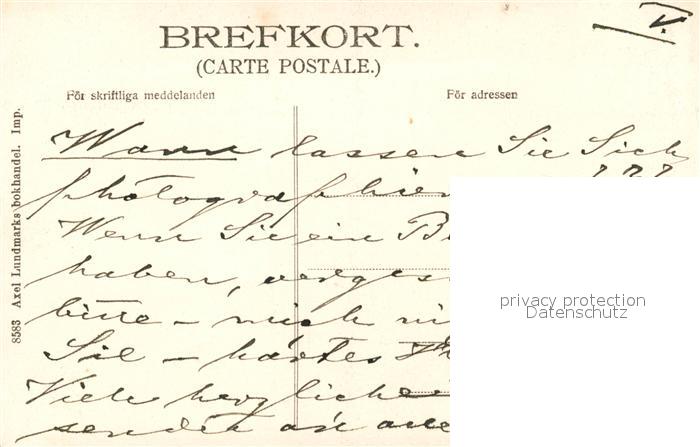 V.
BREFKORT.
(CARTE POSTALE.)
För skriftliga meddelanden
För adressen
8583 Axel Lundmarks bokhandel. Imp.
Wann lassen Sie Sich
photographieren
Wenn Sie ein
haben,
bitte – mich
Sie – hartes
Viele herzliche
senden an
privacy protection
Datenschutz